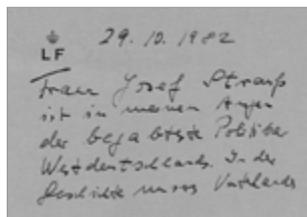 LF
29.10.1982
Franz Josef Strauß
ist in meinen Augen
der begabteste Politiker
Westdeutschlands. In der
Geschichte unseres Vaterlands